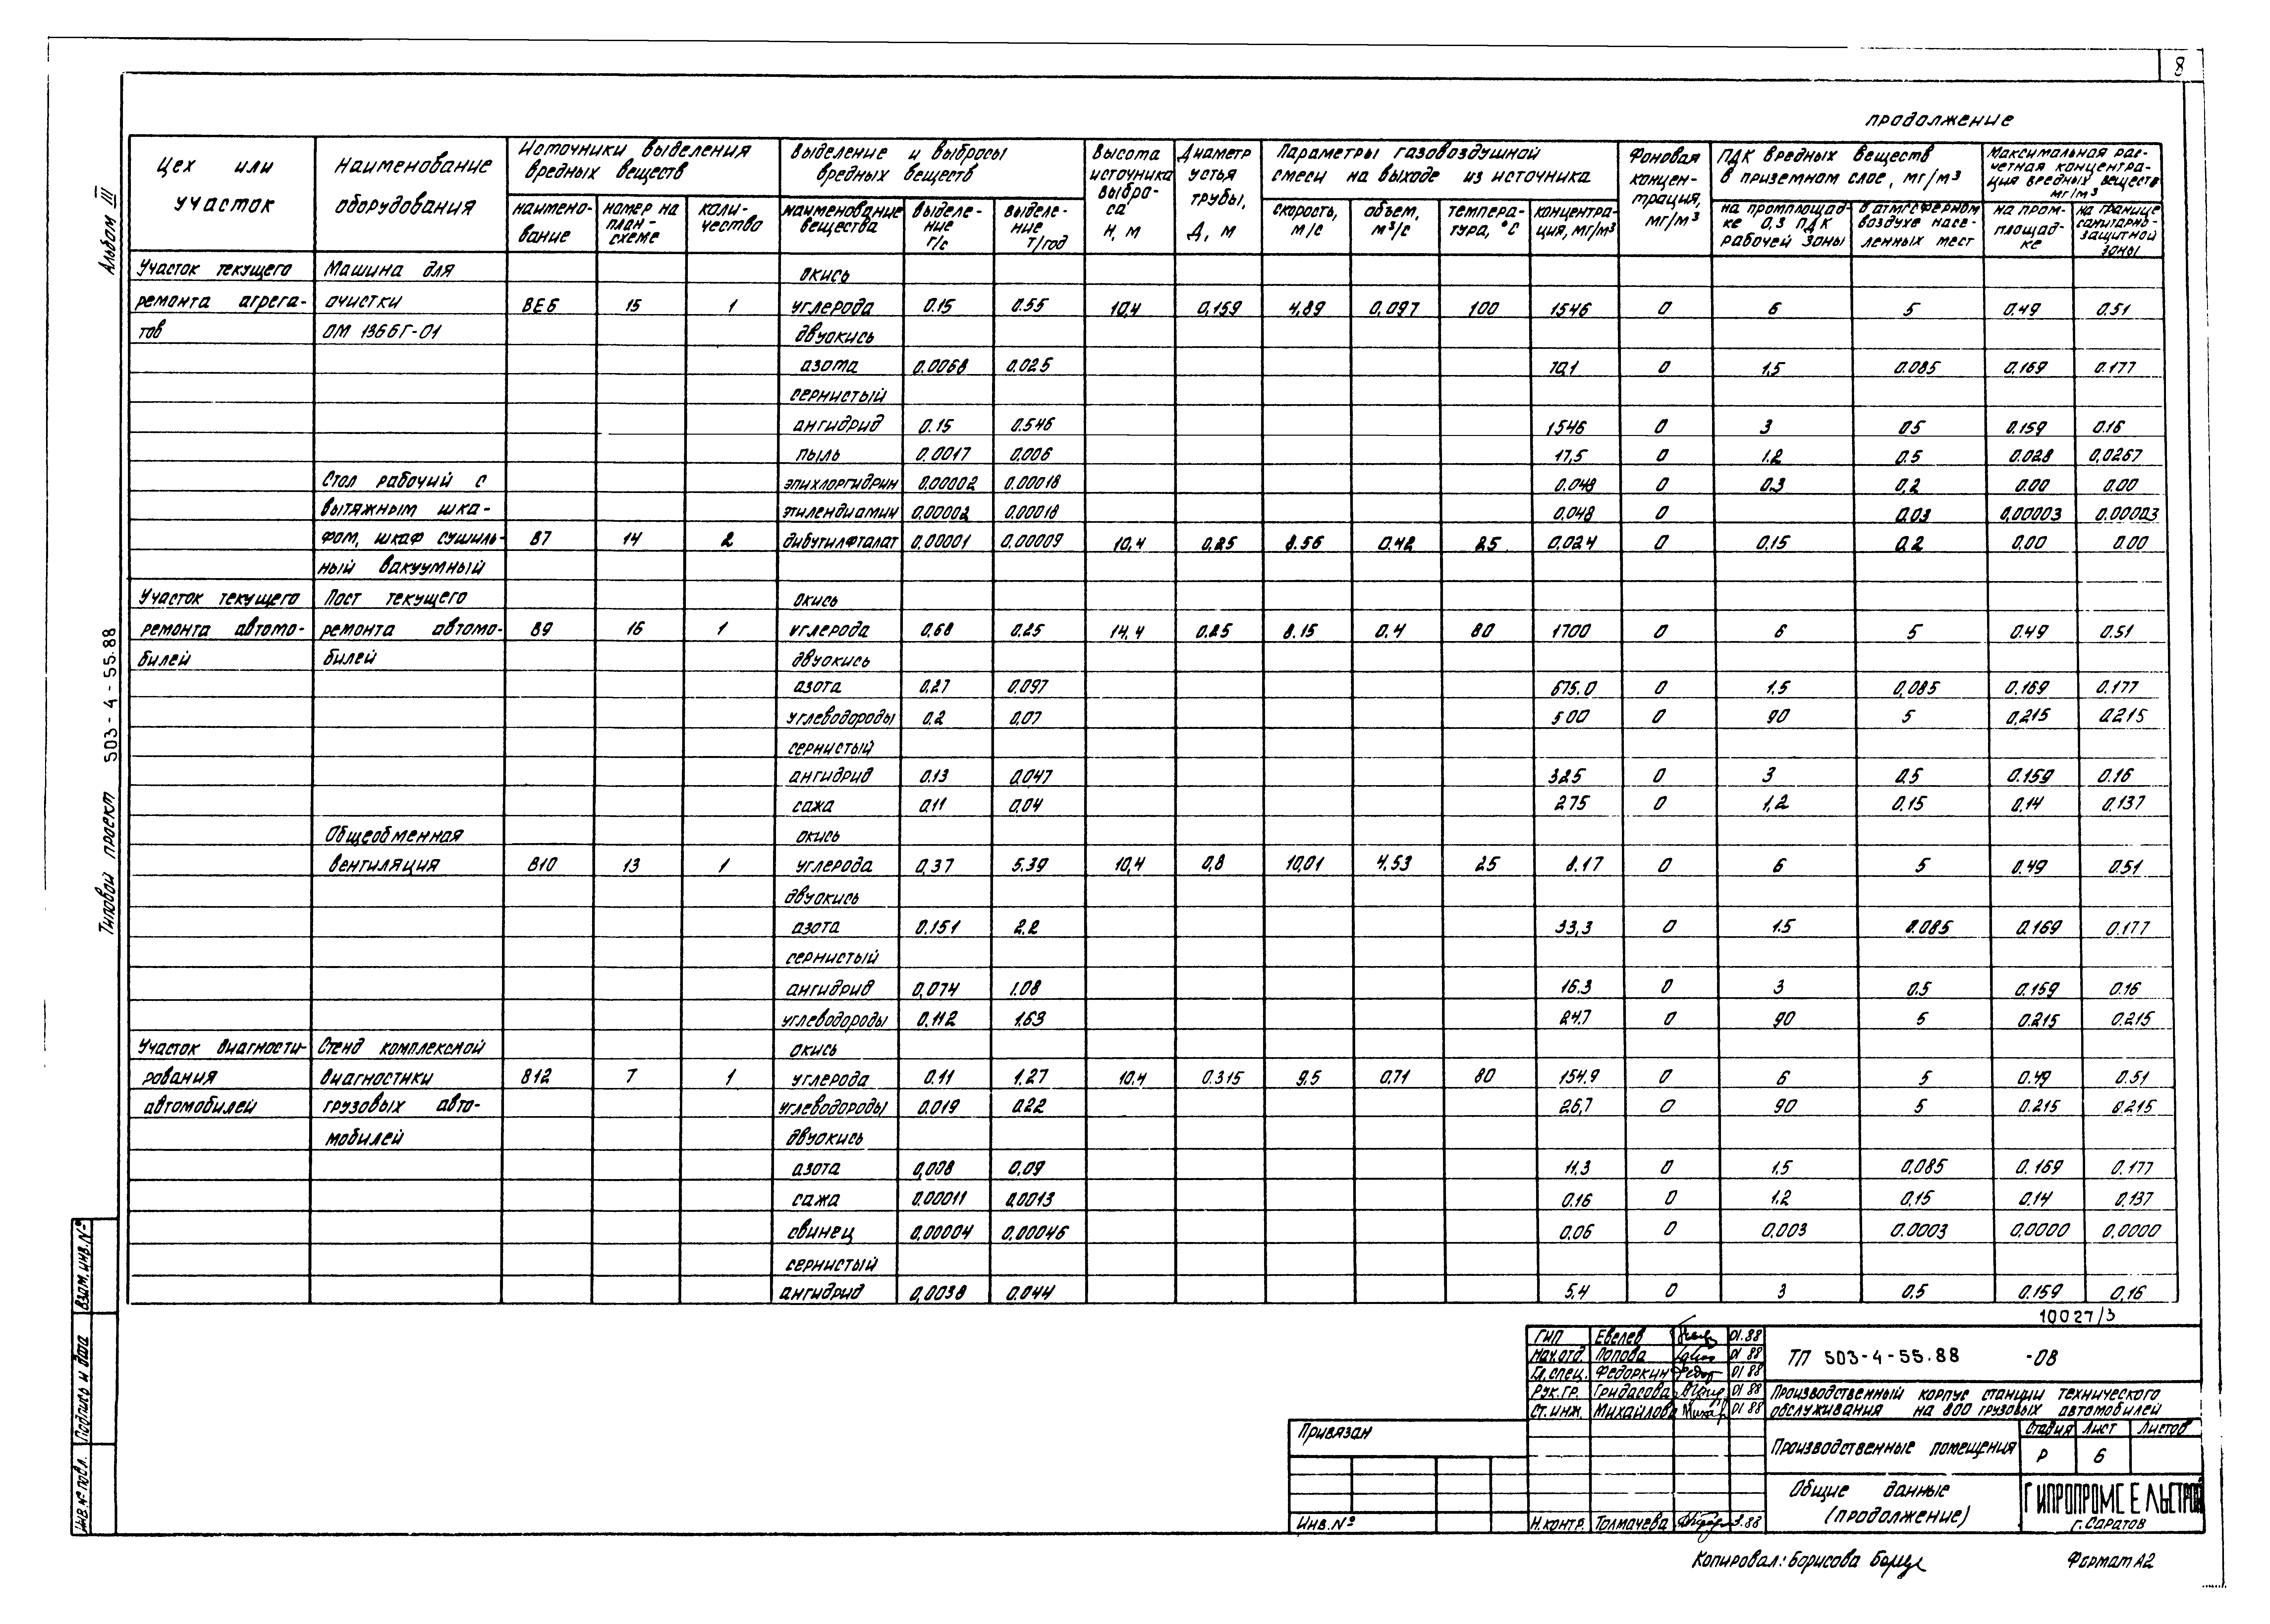 8
продолжение
Цех или участок
Наименование оборудования
Источники выделения вредных веществ
наименование
номер на план-схеме
количество
Выделение и выбросы вредных веществ
наименование вещества
выделение г/с
выделение т/год
Высота источника выброса Н, м
Диаметр устья трубы, Д, м
Параметры газовоздушной смеси на выходе из источника
скорость, м/с
объем, м³/с
температура, °С
концентрация, мг/м³
Фоновая концентрация, мг/м³
ПДК вредных веществ в приземном слое, мг/м³
на промплощадке 0,3 ПДК рабочей зоны
в атмосферном воздухе населенных мест
Максимальная расчетная концентрация вредных веществ мг/м³
на промплощадке
на границе санитарно-защитной зоны
Участок текущего Машина для окись
ремонта агрега- очистки ВЕ6 15 1 углерода 0.15 0.55 10,4 0,159 4,89 0,097 100 1546 0 6 5 0.49 0.51
тов ОМ 1366Г-01 двуокись
азота 0.0068 0.025 70,1 0 1,5 0.085 0.169 0.177
сернистый
ангидрид 0.15 0.546 1546 0 3 0.5 0.159 0.16
пыль 0.0017 0.006 17,5 0 1.2 0.5 0.028 0,0267
Стол рабочий с эпихлоргидрин 0,00002 0.00018 0.048 0 0.3 0,2 0.00 0.00
вытяжным шка- этилендиамин 0,00002 0,00018 0,048 0 0.03 0,00003 0.00003
фом, шкаф сушиль- В7 14 2 дибутилфталат 0,00001 0,00009 10,4 0,25 8.56 0.42 25 0,024 0 0,15 0.2 0,00 0.00
ный вакуумный
Участок текущего Пост текущего окись
ремонта автомо- ремонта автомо- В9 16 1 углерода 0,68 0.25 14,4 0.25 8.15 0,4 80 1700 0 6 5 0.49 0.51
билей билей двуокись
азота 0.27 0,097 675.0 0 1.5 0,085 0.169 0.177
углеводороды 0.2 0,07 500 0 90 5 0,215 0.215
сернистый
ангидрид 0.13 0,047 325 0 3 0,5 0.159 0.16
сажа 0.11 0,04 275 0 1,2 0.15 0,14 0.137
Общеобменная окись
вентиляция В10 13 1 углерода 0,37 5.39 10,4 0,8 10,01 4,53 25 8.17 0 6 5 0.49 0.51
двуокись
азота 0.151 2.2 33,3 0 1.5 0.085 0.169 0.177
сернистый
ангидрид 0,074 1.08 16.3 0 3 0.5 0.159 0.16
углеводороды 0.112 1.63 24.7 0 90 5 0.215 0.215
Участок диагности- Стенд комплексной окись
рования диагностики В12 7 1 углерода 0.11 1.27 10.4 0.315 9.5 0.71 80 154.9 0 6 5 0.49 0.51
автомобилей грузовых авто- углеводороды 0.019 0.22 26,7 0 90 5 0.215 0.215
мобилей двуокись
азота 0,008 0.09 11.3 0 1.5 0,085 0.169 0.177
сажа 0.00011 0,0013 0.16 0 1.2 0,15 0.14 0.137
свинец 0,00004 0,00046 0,06 0 0,003 0.0003 0,0000 0,0000
сернистый
ангидрид 0,0038 0.044 5,4 0 3 0,5 0.159 0,16
Альбом III
Типовой проект 503-4-55.88
Взам. инв. №
Подпись и дата
Инв. № подл.
10027/3
ГИП Евелев 01.88
Нач. отд. Попова 01 88
Гл. спец. Федоркин 01 88
Рук. гр. Гридасова 01 88
Ст. инж. Михайлова 01 88
Н. контр. Толмачева 3.88
ТП 503-4-55.88 -08
Производственный корпус станции технического
обслуживания на 800 грузовых автомобилей
Привязан
Инв. №
Производственные помещения
Стадия Лист Листов
Р 6
Общие данные
(продолжение)
ГИПРОПРОМСЕЛЬСТРОЙ
г. Саратов
Копировал: Борисова
Формат А2